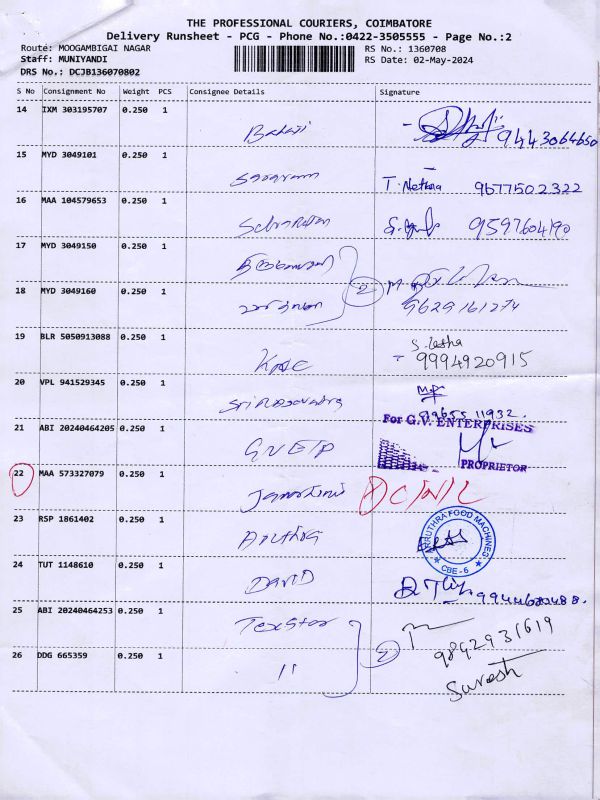 THE PROFESSIONAL COURIERS, COIMBATORE
Delivery Runsheet - PCG - Phone No.:0422-3505555 - Page No.:2
Route: MOOGAMBIGAI NAGAR RS No.: 1360708
Staff: MUNIYANDI RS Date: 02-May-2024
DRS No.: DCJB136070802
S No Consignment No Weight PCS Consignee Details Signature
14 IXM 303195707 0.250 1
Balaji 9443064650
15 MYD 3049101 0.250 1
T. Nethra 9677502322
16 MAA 104579653 0.250 1
9597604190
17 MYD 3049150 0.250 1
2
18 MYD 3049160 0.250 1
9629161274
19 BLR 5050913088 0.250 1
9994920915
20 VPL 941529345 0.250 1
9965511932.
21 ABI 20240464205 0.250 1
For G.V. ENTERPRISES
PROPRIETOR
22 MAA 573327079 0.250 1
23 RSP 1861402 0.250 1
Aruthra
ARRUTHRA FOOD MACHINES
CBE - 6
24 TUT 1148610 0.250 1
David
25 ABI 20240464253 0.250 1
Texstar 9842931619
26 DDG 665359 0.250 1
" 2
Suresh